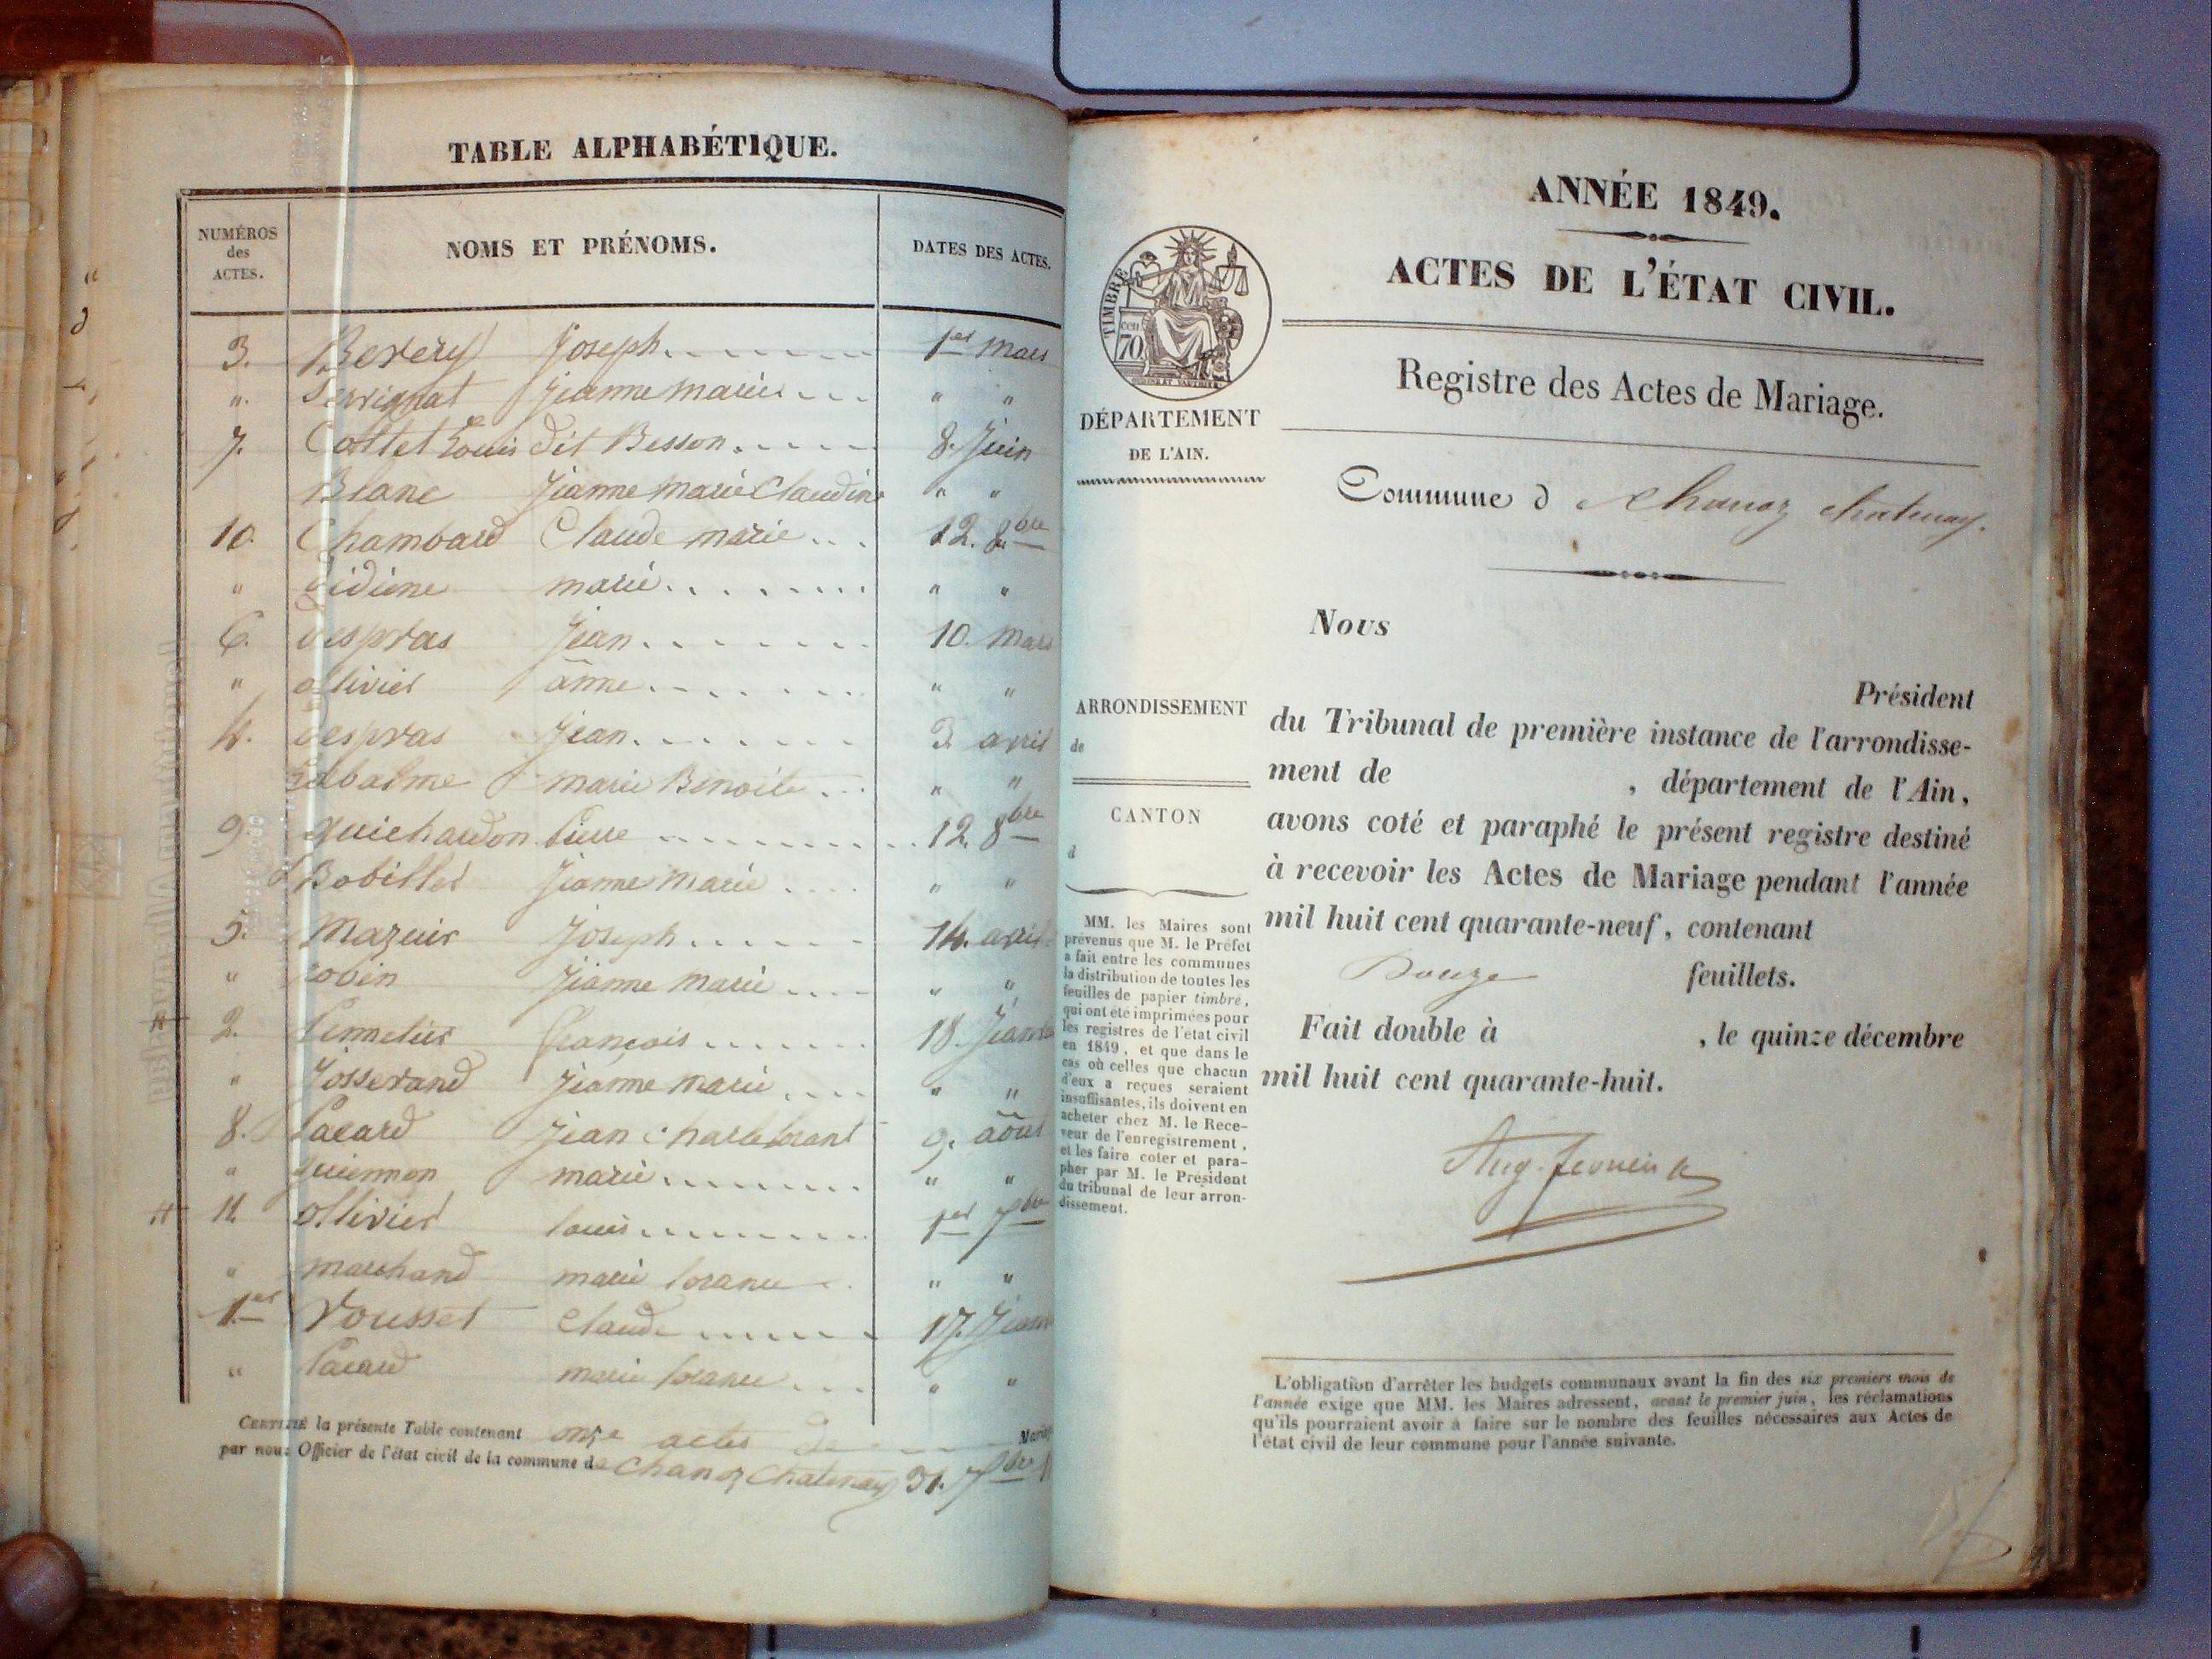 TABLE ALPHABÉTIQUE.
NUMÉROS
des
ACTES.
NOMS ET PRÉNOMS.
DATES DES ACTES.
3. Joseph 1er mars
" Jeanne marie " "
7. Collet Louis dit Besson 8. Juin
Blanc Jeanne marie Claudine " "
10. Chambard Claude marie 12. 8bre
" marie " "
6. despras Jean 10. mars
" ollivier anne " "
4. despras Jean 3 avril
marie Benoite " "
9 guichardon Pierre 12. 8bre
Bobillet Jeanne Marie " "
5. Mazuir Joseph 14. avril
" robin Jeanne marie " "
2. François 18.
" Josserand Jeanne marie " "
8. Pacard Jean 9. août
" marie " "
11. ollivier louis 1er
" marchand marie " "
1er Vousset Claude 17.
" Pacard marie " "
CERTIFIÉ la présente Table contenant onze actes de
par nous Officier de l'état civil de la commune de Chanoz Chatenay 31.
ANNÉE 1849.
ACTES DE L'ÉTAT CIVIL.
Registre des Actes de Mariage.
TIMBRE
70
DÉPARTEMENT
DE L'AIN.
Commune d Chanoz chatenay.
Nous
Président
du Tribunal de première instance de l'arrondisse-
ment de , département de l'Ain,
avons coté et paraphé le présent registre destiné
à recevoir les Actes de Mariage pendant l'année
mil huit cent quarante-neuf, contenant
Douze feuillets.
Fait double à , le quinze décembre
mil huit cent quarante-huit.
Aug.
ARRONDISSEMENT
de
CANTON
d
MM. les Maires sont
prévenus que M. le Préfet
a fait entre les communes
la distribution de toutes les
feuilles de papier timbré,
qui ont été imprimées pour
les registres de l'état civil
en 1849, et que dans le
cas où celles que chacun
d'eux a reçues seraient
insuffisantes, ils doivent en
acheter chez M. le Rece-
veur de l'enregistrement,
et les faire coter et para-
pher par M. le Président
du tribunal de leur arron-
dissement.
L'obligation d'arrêter les budgets communaux avant la fin des six premiers mois de
l'année exige que MM. les Maires adressent, avant le premier juin, les réclamations
qu'ils pourraient avoir à faire sur le nombre des feuilles nécessaires aux Actes de
l'état civil de leur commune pour l'année suivante.